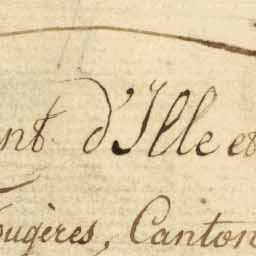 nt. d'Ille et
Fougères, Canton